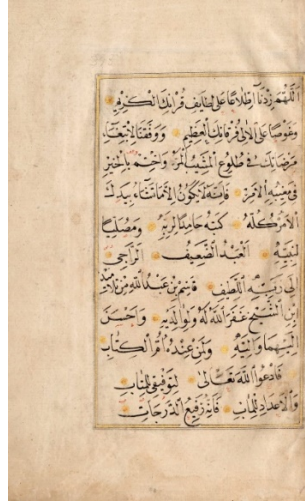 اللهم زدنا اطلاعا على لطايف قرآنك الكريم
وغوصا على لآلي فرقانك العظيم ووفقنا لابتغاء
مرضاتك في طلوع المشيب المر واختم بالخير
في مغيبه الامر فانه لا يكون الا ما تشاء بيدك
الامر كله كتبه حامدا لربه ومصليا
لنبيه العبد الضعيف الراجي
الى ربه اللطيف قاسم بن عبد الله من تلاميذ
ابن الشيخ غفر الله له ولوالديه واحسن
اليهما واليه ولمن عنده اقرأ الكتاب
فادعوا الله تعالى لتوفيق المتاب
والاعداد للمآب فانه رفيع الدرجات